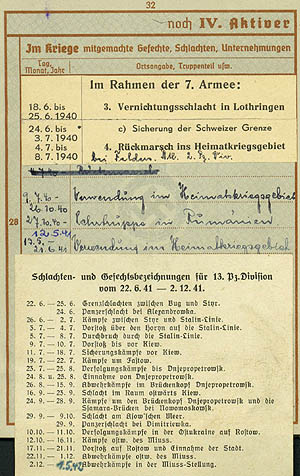 32
noch IV. Aktiver
Im Kriege mitgemachte Gefechte, Schlachten, Unternehmungen
Tag, Monat, Jahr
Ortsangabe, Truppenteil usw.
Im Rahmen der 7. Armee:
18. 6. bis 25. 6. 1940
3. Vernichtungsschlacht in Lothringen
24. 6. bis 3. 7. 1940
c) Sicherung der Schweizer Grenze
4. 7. bis 8. 7. 1940
4. Rückmarsch ins Heimatkriegsgebiet
bei 2. Pz. Div.
9. 7. 40 - 26. 10. 40
Verwendung im Heimatkriegsgebiet
28
27. 10. 40 - 12. 5. 41
Lehrtruppe in Rumänien
13. 5. - 21. 6. 41
Verwendung im Heimatkriegsgebiet
Schlachten- und Gefechtsbezeichnungen für 13. Pz.Division
vom 22. 6. 41 — 2. 12. 41.
22. 6. — 25. 6. Grenzschlachten zwischen Bug und Styr.
24. 6. Panzerschlacht bei Alexandrowka.
26. 6. — 2. 7. Kämpfe zwischen Styr und Stalin-Linie.
3. 7. — 4. 7. Vorstoß über den Horyn auf die Stalin-Linie.
5. 7. — 8. 7. Durchbruch durch die Stalin-Linie.
9. 7. — 10. 7. Vorstoß bis vor Kiew.
11. 7. — 18. 7. Sicherungskämpfe vor Kiew.
19. 7. — 22. 7. Kämpfe um Fastow.
23. 7. — 25. 8. Verfolgungskämpfe bis Dnjepropetrowsk.
24. 8. u. 25. 8. Einnahme von Dnjepropetrowsk.
26. 8. — 15. 9. Abwehrkämpfe im Brückenkopf Dnjepropetrowsk.
16. 9. — 23. 9. Schlacht im Raum ostwärts Kiew.
24. 9. — 28. 9. Kämpfe um den Brückenkopf Dnjepropetrowsk und die
Sjamara-Brücken bei Nowomoskowsk.
29. 9. — 9. 10. Schlacht am Asow'schen Meer.
29. 9. Panzerschlacht bei Dimitriewka.
10. 10. — 11. 10. Verfolgungskämpfe in der Ostukraine auf Rostow.
12. 10. — 16. 11. Kämpfe ostw. des Miuss.
17. 11. — 21. 11. Vorstoß auf Rostow und Einnahme der Stadt.
22. 11. — 1. 12. Abwehrkämpfe ostw. des Miuss.
Abwehrkämpfe in der Miuss-Stellung.